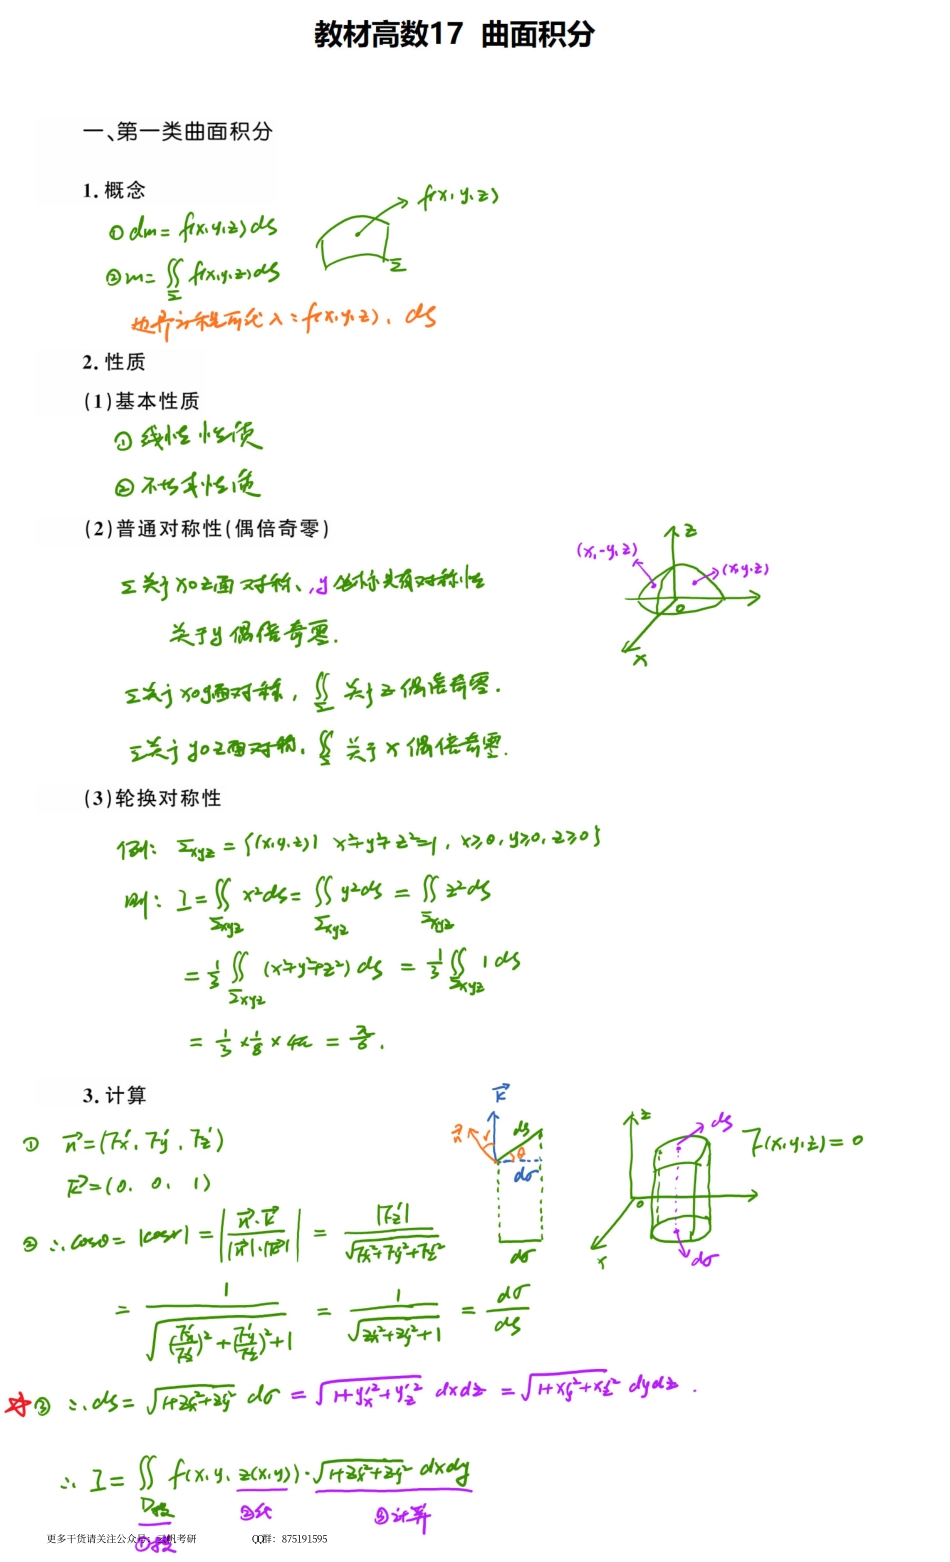 教材高数17 曲面积分
一、第一类曲面积分
1. 概念
f(x,y,z)
① dm = f(x,y,z)ds
② m = ∬_Σ f(x,y,z)ds
Σ
边界方程可代入:f(x,y,z)、ds
2. 性质
(1)基本性质
① 线性性质
② 不等式性质
(2)普通对称性(偶倍奇零)
z
(x,-y,z)
(x,y,z)
o
x
Σ关于xoz面对称、,y坐标具有对称性
关于y偶倍奇零.
Σ关于xoy面对称,∬_Σ 关于z偶倍奇零.
Σ关于yoz面对称,∬_Σ 关于x偶倍奇零.
(3)轮换对称性
例: Σxyz = {(x,y,z)| x²+y²+z²=1, x≥0, y≥0, z≥0}
则: I = ∬_Σxyz x²ds = ∬_Σxyz y²ds = ∬_Σxyz z²ds
= 1/3 ∬_Σxyz (x²+y²+z²)ds = 1/3 ∬_Σxyz 1ds
= 1/3 × 1/8 × 4π = π/6.
3. 计算
k⃗
n⃗
γ
ds
θ
dσ
dσ
z
ds
F(x,y,z)=0
o
x
dσ
① n⃗=(F'x, F'y, F'z)
k⃗=(0, 0, 1)
② ∴cosθ = |cosγ| = |n⃗·k⃗ / |n⃗|·|k⃗|| = |F'z| / √(F'x²+F'y²+F'z²)
= 1 / √((F'x/F'z)²+(F'y/F'z)²+1) = 1 / √(z'x²+z'y²+1) = dσ/ds
☆③ ∴ds = √(1+z'x²+z'y²) dσ = √(1+y'x²+y'z²) dxdz = √(1+x'y²+x'z²) dydz.
∴ I = ∬_D投 f(x,y,z(x,y))·√(1+z'x²+z'y²) dxdy
①投
②代
③计算
更多干货请关注公众号:
帆考研
QQ群: 875191595